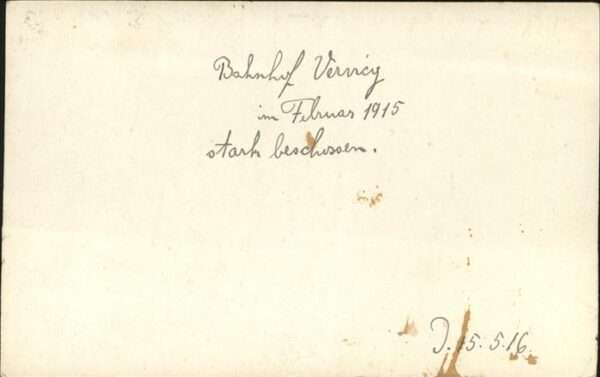 Bahnhof Vervicq
im Februar 1915
stark beschossen.
5.5.16.